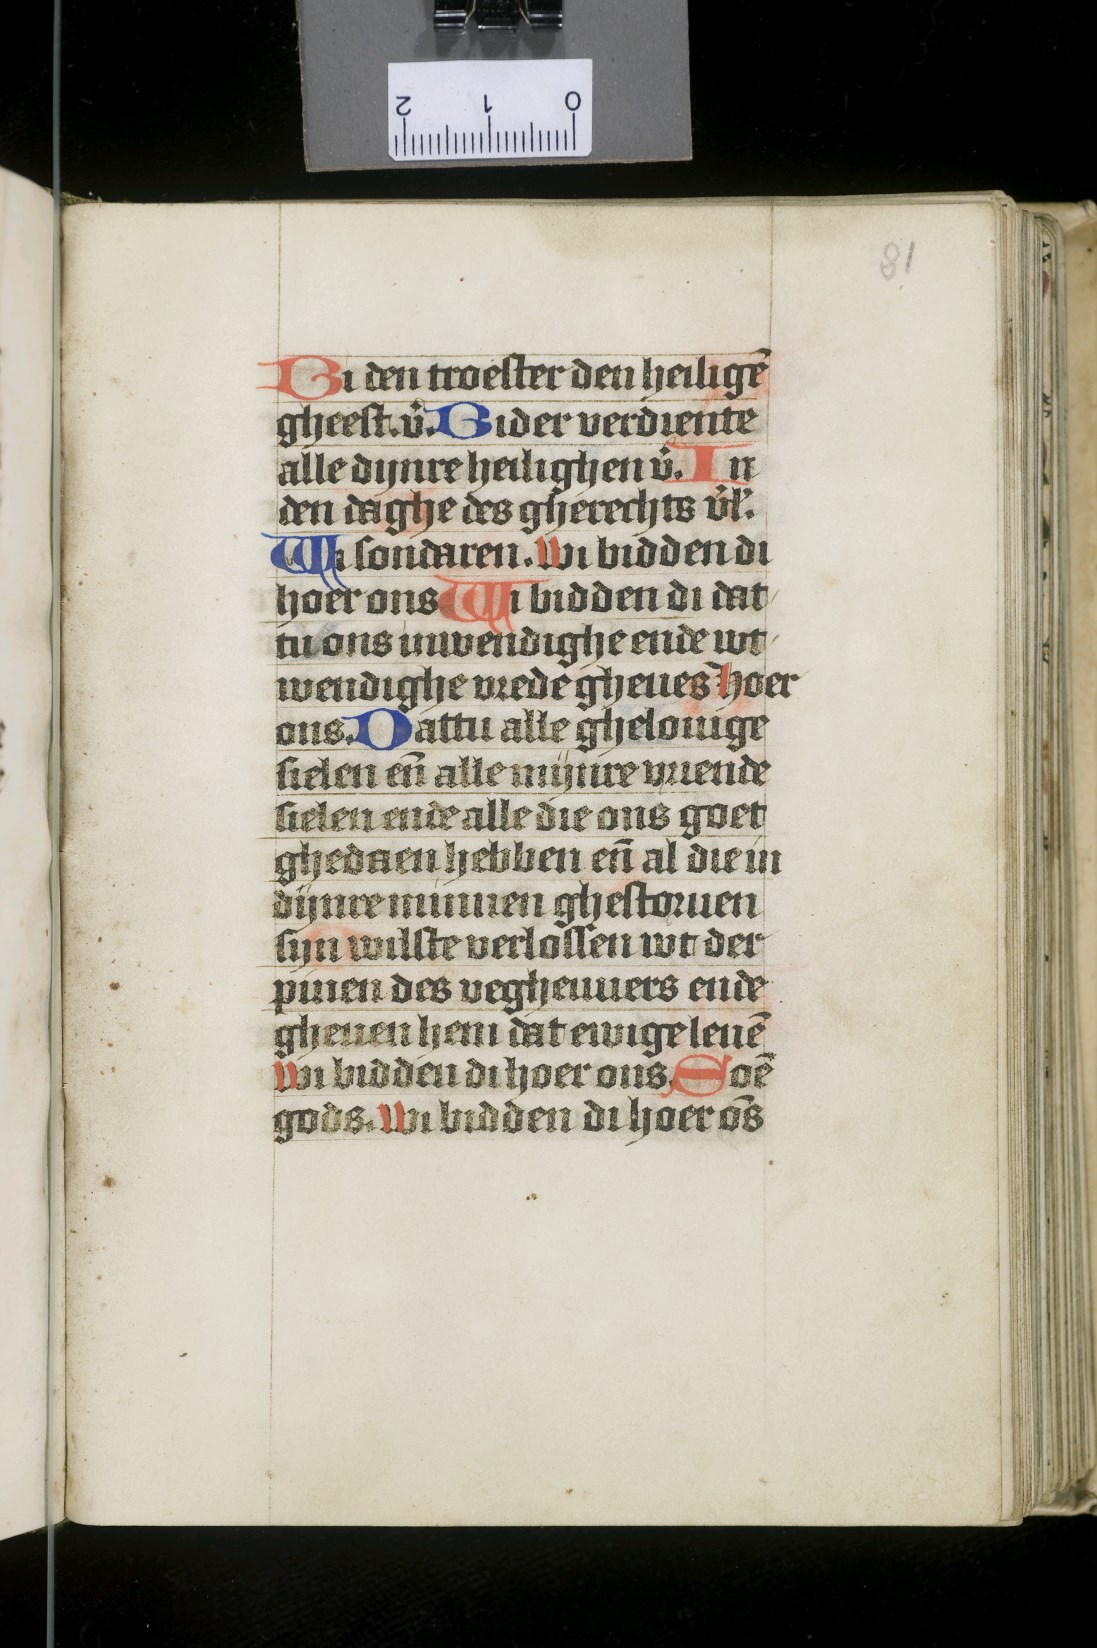 81
Bi den troester den heiligē
gheest. v̓. Bi der verdiente
alle dijnre heilighen v̓. In
den daghe des gherechts v̓l̓.
Wi sondaren. Wi bidden di
hoer ons Wi bidden di dat
tu ons inwendighe ende wt
wendighe vrede gheues hoer
ons. Dattu alle ghelouige
sielen en̄ alle mijnre vriende
sielen ende alle die ons goet
ghedaen hebben en̄ al die in
dijnre minnen ghestoruen
sijn wilste verlossen wt der
pinen des vegheuuers ende
gheuen hem dat ewige leuē
Wi bidden di hoer ons. Soē
gods. Wi bidden di hoer ōs
0 1 2